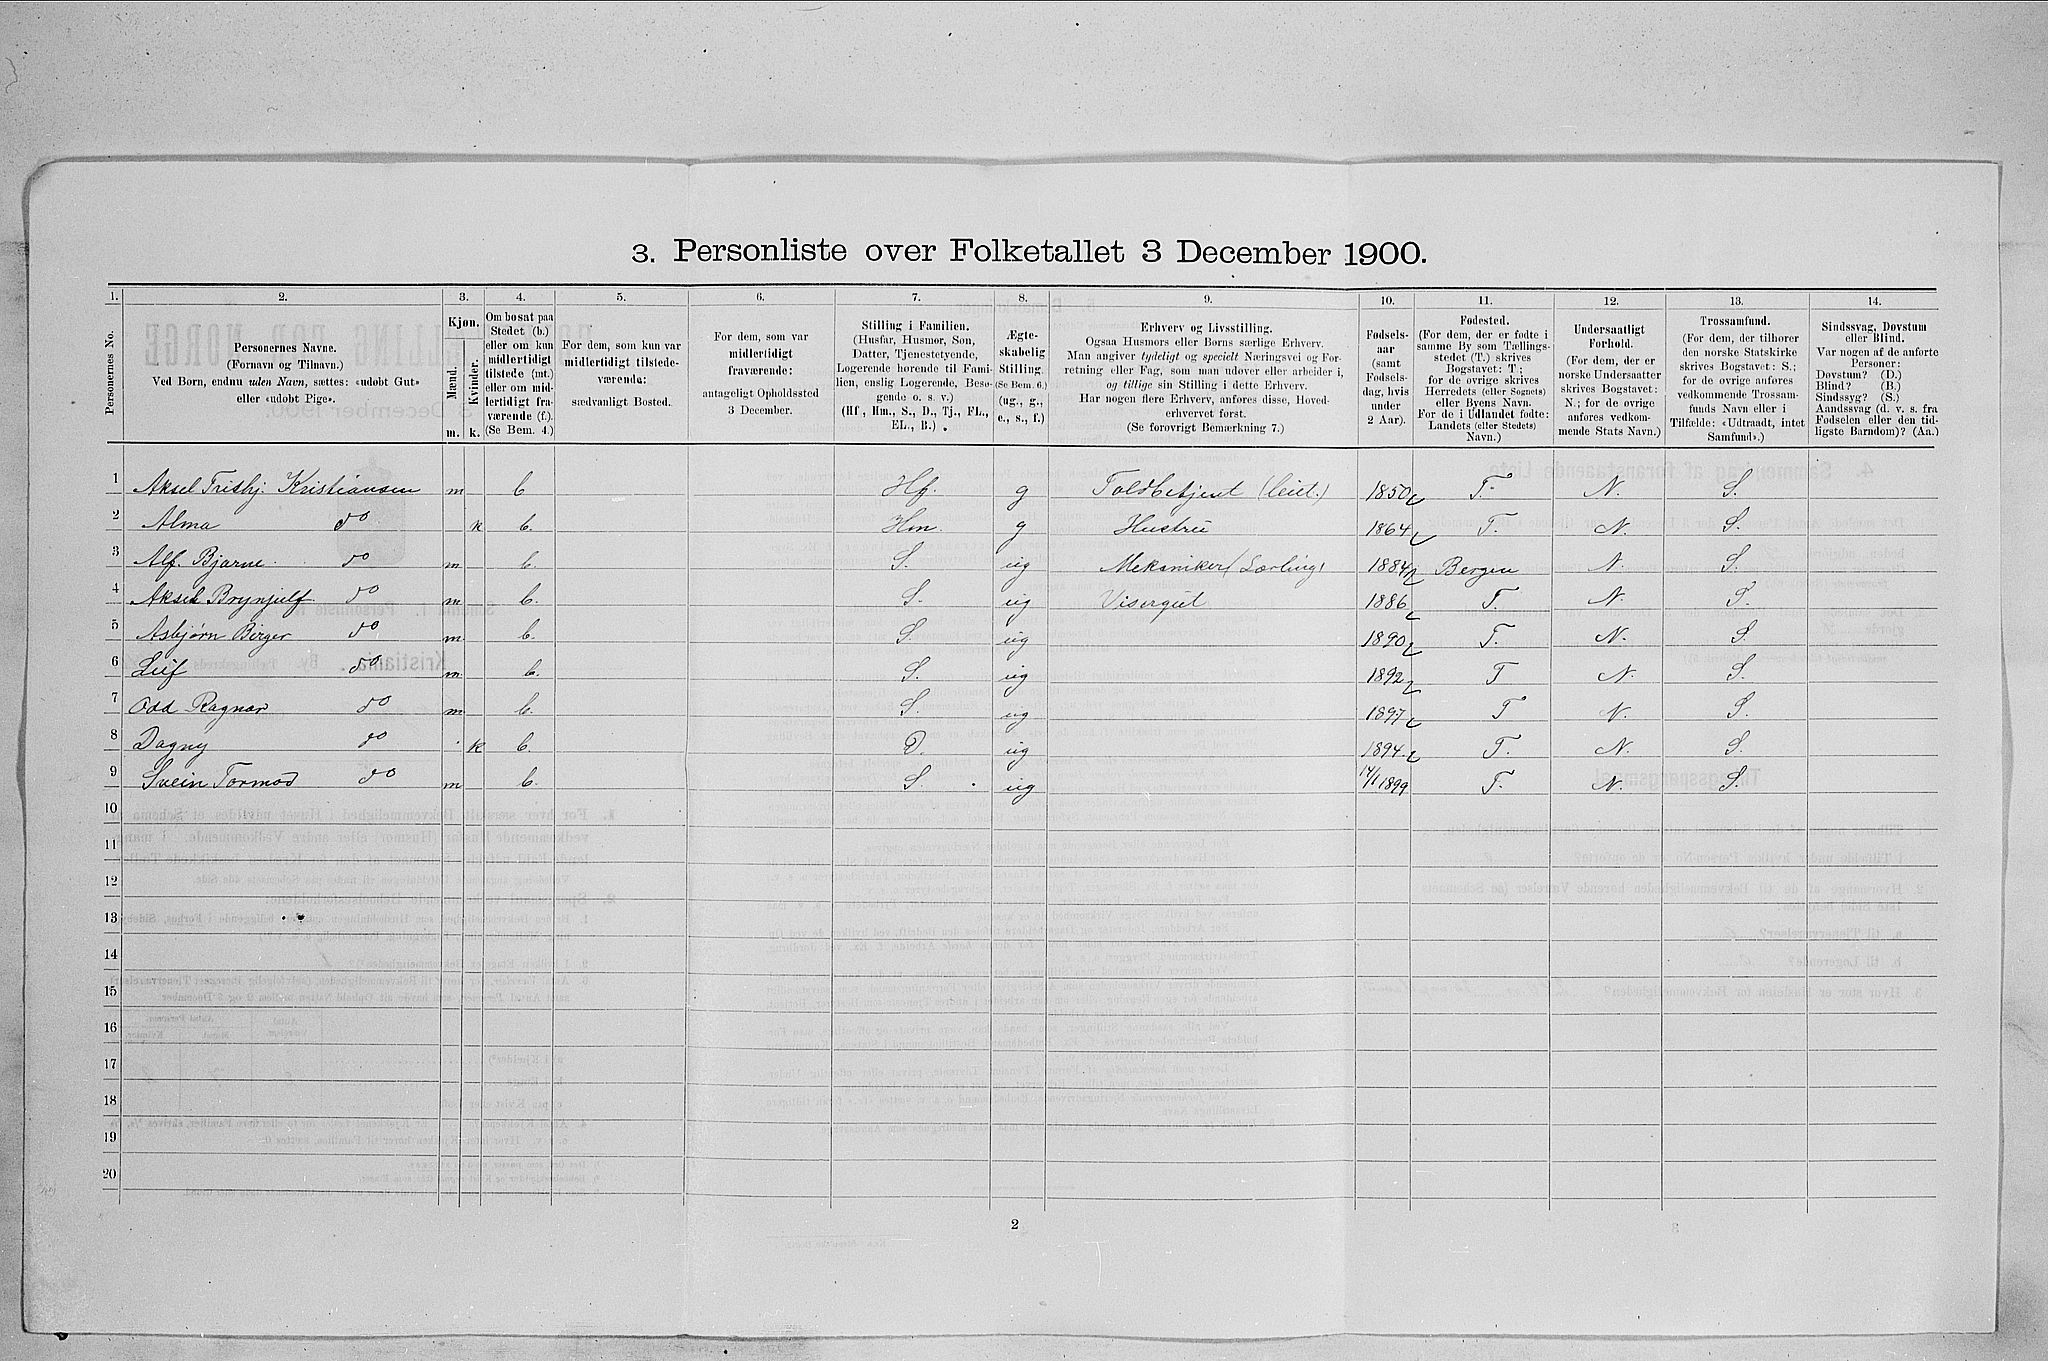 3. Personliste over Folketallet 3 December 1900.
1. 2. 3. 4. 5. 6. 7. 8. 9. 10. 11. 12. 13. 14.
Personernes No.
Personernes Navne.
(Fornavn og Tilnavn.)
Ved Børn, endnu uden Navn, sættes: «udøbt Gut»
eller «udøbt Pige».
Kjøn.
Mænd.
m.
Kvinder.
k.
Om bosat paa
Stedet (b.)
eller om kun
midlertidigt
tilstede (mt.)
eller om mid-
lertidigt fra-
værende (f.).
(Se Bem. 4.)
For dem, som kun var
midlertidigt tilstede-
værende:
sædvanligt Bosted.
For dem, som var
midlertidigt
fraværende:
antageligt Opholdssted
3 December.
Stilling i Familien.
(Husfar, Husmor, Søn,
Datter, Tjenestetyende,
Logerende hørende til Fami-
lien, enslig Logerende, Besø-
gende o. s. v.)
(Hf, Hm., S., D., Tj., FL.,
EL., B.)
Ægte-
skabelig
Stilling.
(Se Bem. 6.)
(ug., g.,
e., s., f.)
Erhverv og Livsstilling.
Ogsaa Husmors eller Børns særlige Erhverv.
Man angiver tydeligt og specielt Næringsvei og For-
retning eller Fag, som man udøver eller arbeider i,
og tillige sin Stilling i dette Erhverv.
Har nogen flere Erhverv, anføres disse, Hoved-
erhvervet først.
(Se forøvrigt Bemærkning 7.)
Fødsels-
aar
(samt
Fødsels-
dag, hvis
under
2 Aar).
Fødested.
(For dem, der er fødte i
samme By som Tællings-
stedet (T.) skrives
Bogstavet: T;
for de øvrige skrives
Herredets (eller Sognets)
eller Byens Navn.
For de i Udlandet fødte:
Landets (eller Stedets)
Navn.)
Undersaatligt
Forhold.
(For dem, der er
norske Undersaatter
skrives Bogstavet:
N.; for de øvrige
anføres vedkom-
mende Stats Navn.)
Trossamfund.
(For dem, der tilhører
den norske Statskirke
skrives Bogstavet: S.;
for de øvrige anføres
vedkommende Trossam-
funds Navn eller i
Tilfælde: «Udtraadt, intet
Samfund».)
Sindssvag, Døvstum
eller Blind.
Var nogen af de anførte
Personer:
Døvstum? (D.)
Blind? (B.)
Sindssyg? (S.)
Aandssvag (d. v. s. fra
Fødselen eller den tid-
ligste Barndom)? (Aa.)
1 Aksel Kristiansen m b Hf. g Toldbetjent 1850 T. N. S.
2 Alma do k b. Hm. g Hustru 1864 T. N. S.
3 Alf. Bjarne do m b. S. ug Mekaniker (Lærling) 1884 Bergen N. S.
4 Aksel Brynjulf do m b. S. ug Visergut 1886 T. N. S.
5 Asbjørn Birger do m. b. S. ug 1890 T. N. S.
6 Leif do m. b. S. ug 1892 T N. S.
7 Odd Ragnar do m b. S. ug 1897 T N. S.
8 Dagny do k b. D. ug 1894. T. N. S.
9 Svein Tormod do m b. S. ug 14/1 1899 T. N. S.
10
11
12
13
14
15
16
17
18
19
20
2